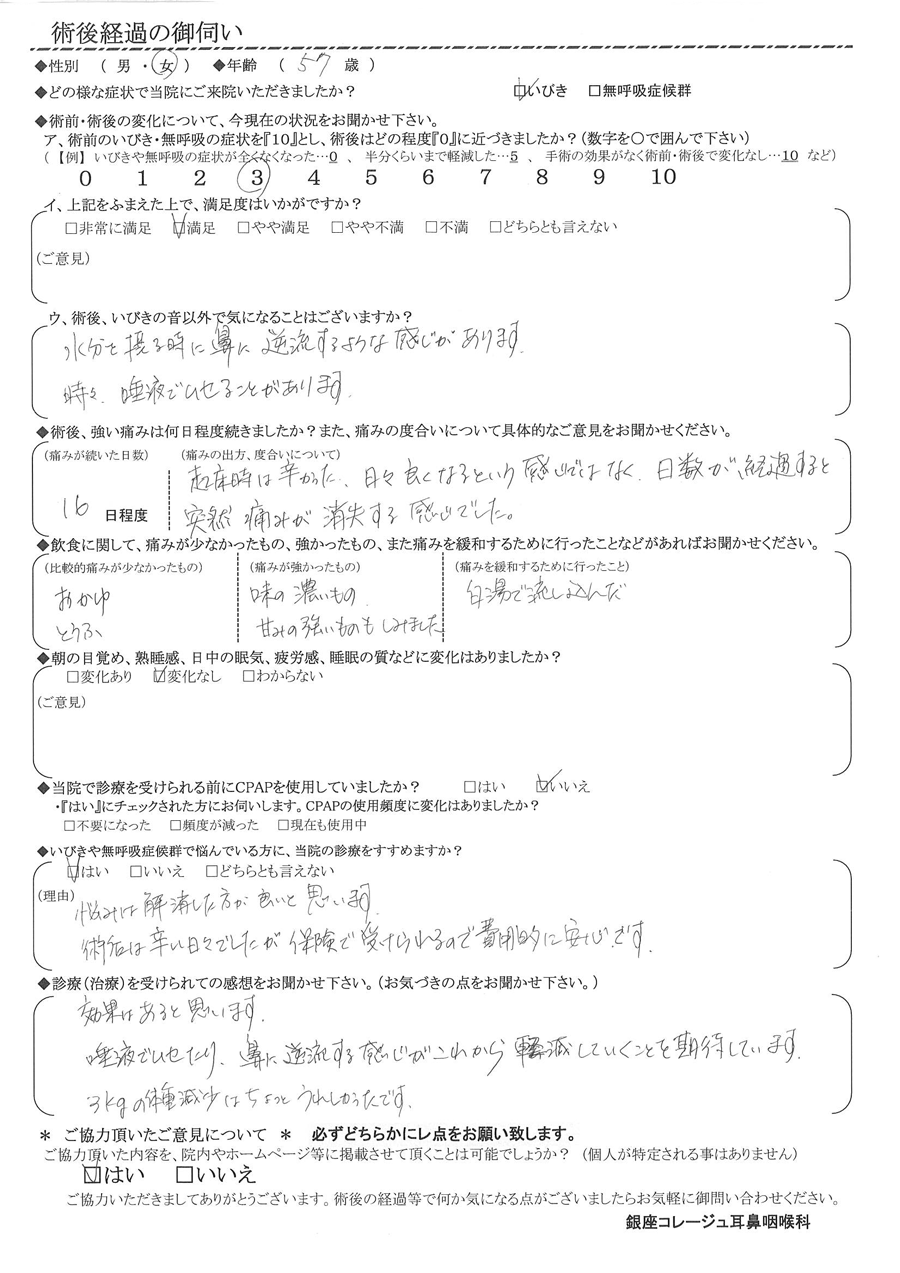 術後経過の御伺い
◆性別 （ 男 ・ 女 ） ◆年齢 （ 57 歳 ）
◆どの様な症状で当院にご来院いただきましたか？ □いびき □無呼吸症候群
◆術前・術後の変化について、今現在の状況をお聞かせ下さい。
ア、術前のいびき・無呼吸の症状を『10』とし、術後はどの程度『0』に近づきましたか？（数字を〇で囲んで下さい）
（【例】 いびきや無呼吸の症状が全くなくなった…0 、 半分くらいまで軽減した…5 、 手術の効果がなく術前・術後で変化なし…10 など）
0 1 2 3 4 5 6 7 8 9 10
イ、上記をふまえた上で、満足度はいかがですか？
□非常に満足 □満足 □やや満足 □やや不満 □不満 □どちらとも言えない
（ご意見）
ウ、術後、いびきの音以外で気になることはございますか？
水分を摂る時に鼻に逆流するような感じがあります。
時々、唾液でむせることがあります。
◆術後、強い痛みは何日程度続きましたか？また、痛みの度合いについて具体的なご意見をお聞かせください。
（痛みが続いた日数） （痛みの出方、度合いについて）
起床時は辛かった、日々良くなるという感じではなく、日数が経過すると
16 日程度 突然痛みが消失する感じでした。
◆飲食に関して、痛みが少なかったもの、強かったもの、また痛みを緩和するために行ったことなどがあればお聞かせください。
（比較的痛みが少なかったもの） （痛みが強かったもの） （痛みを緩和するために行ったこと）
おかゆ 味の濃いもの 白湯で流し込んだ
とうふ 甘みの強いものもしみました
◆朝の目覚め、熟睡感、日中の眠気、疲労感、睡眠の質などに変化はありましたか？
□変化あり □変化なし □わからない
（ご意見）
◆当院で診療を受けられる前にCPAPを使用していましたか？ □はい □いいえ
・『はい』にチェックされた方にお伺いします。CPAPの使用頻度に変化はありましたか？
□不要になった □頻度が減った □現在も使用中
◆いびきや無呼吸症候群で悩んでいる方に、当院の診療をすすめますか？
□はい □いいえ □どちらとも言えない
（理由）
悩みは解消した方が良いと思います。
術後は辛い日々でしたが保険で受けられるので費用的に安心です。
◆診療（治療）を受けられての感想をお聞かせ下さい。（お気づきの点をお聞かせ下さい。）
効果はあると思います。
唾液でむせたり、鼻に逆流する感じがこれから軽減していくことを期待しています。
3kgの体重減少はちょっとうれしかったです。
＊ ご協力頂いたご意見について ＊ 必ずどちらかにレ点をお願い致します。
ご協力頂いた内容を、院内やホームページ等に掲載させて頂くことは可能でしょうか？ （個人が特定される事はありません）
□はい □いいえ
ご協力いただきましてありがとうございます。術後の経過等で何か気になる点がございましたらお気軽に御問い合わせください。
銀座コレージュ耳鼻咽喉科